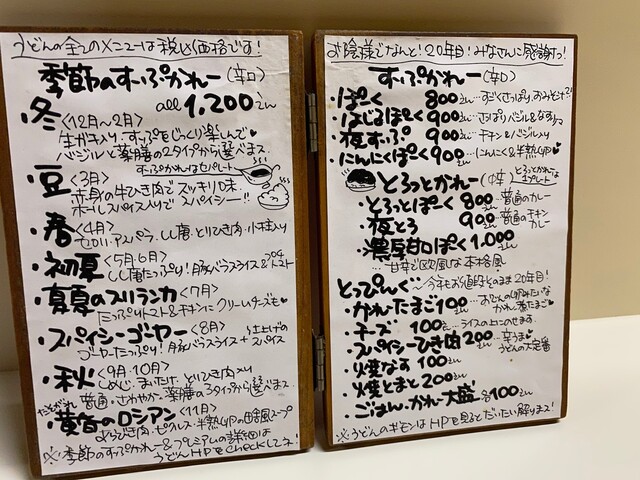 うどんの全てのメニューは税込価格です!
季節のすーぷかれー(辛口)
all 1,200えん
・冬<12月〜2月>
生ガキ入り。すーぷをじっくり楽しんで♥
バジルと薬膳の2タイプから選べます。
すーぷかれーはセパレート
・豆<3月>
赤身の牛ひき肉でスッキリ味
ホールスパイス入りでスパイシー!!
・春<4月>
アスパラ、しし唐・とりひき肉・小柱入り
・初夏<5月6月>
しし唐たっぷり!豚バラスライス&プチトマト
・真夏のスリランカ<7月>
たっぷりトマト&チキンにクリームチーズも♥
・スパイシーゴーヤー<8月>
ゴーヤーたっぷり!豚バラスライス+スパイス
・秋<9月・10月>
しめじ、まいたけ、とりひき肉入り
普通・さわやか・薬膳の3タイプから選べます
・黄昏のロシアン<11月>
ピクルス・半熟UPの
※季節のすっぷかれー&プレミアムの詳細は
うどんHPをCheckしてネ!
お陰様でなんと!20年目!みなさんに感謝っ!
すーぷかれー(辛口)
・ぽーく 800えん…すごくさっぱり。おみそ汁?!
・はじるぽーく 900えん…さっぱりバジル&なま
・夜すーぷ 900えん…チキン&バジル入り
・にんにくぽーく 900えん…にんにく&半熟UP♥
とろっとかれー(中辛)
とろっとかれーは1プレート
・とろっとぽーく 800えん…普通のカレー
・夜とろ 900えん…普通のチキンカレー
・濃厚甘口ぽーく 1,000えん
…甘辛で欧風な本格風
とっぴんぐ〜今年もお値段そのまま20年目!
・かれーたまご 100えん…おでんの味みたいなかれー煮たまご♥
・チーズ 100えん…ライスの上にのせます
・スパイシーひき肉 200えん…辛うま♥うどんの大定番
・焼なす 100えん
・焼とまと 200えん
・ごはん・かれー大盛 各100えん
※うどんのギモンはHPを見るとだいたい解ります!